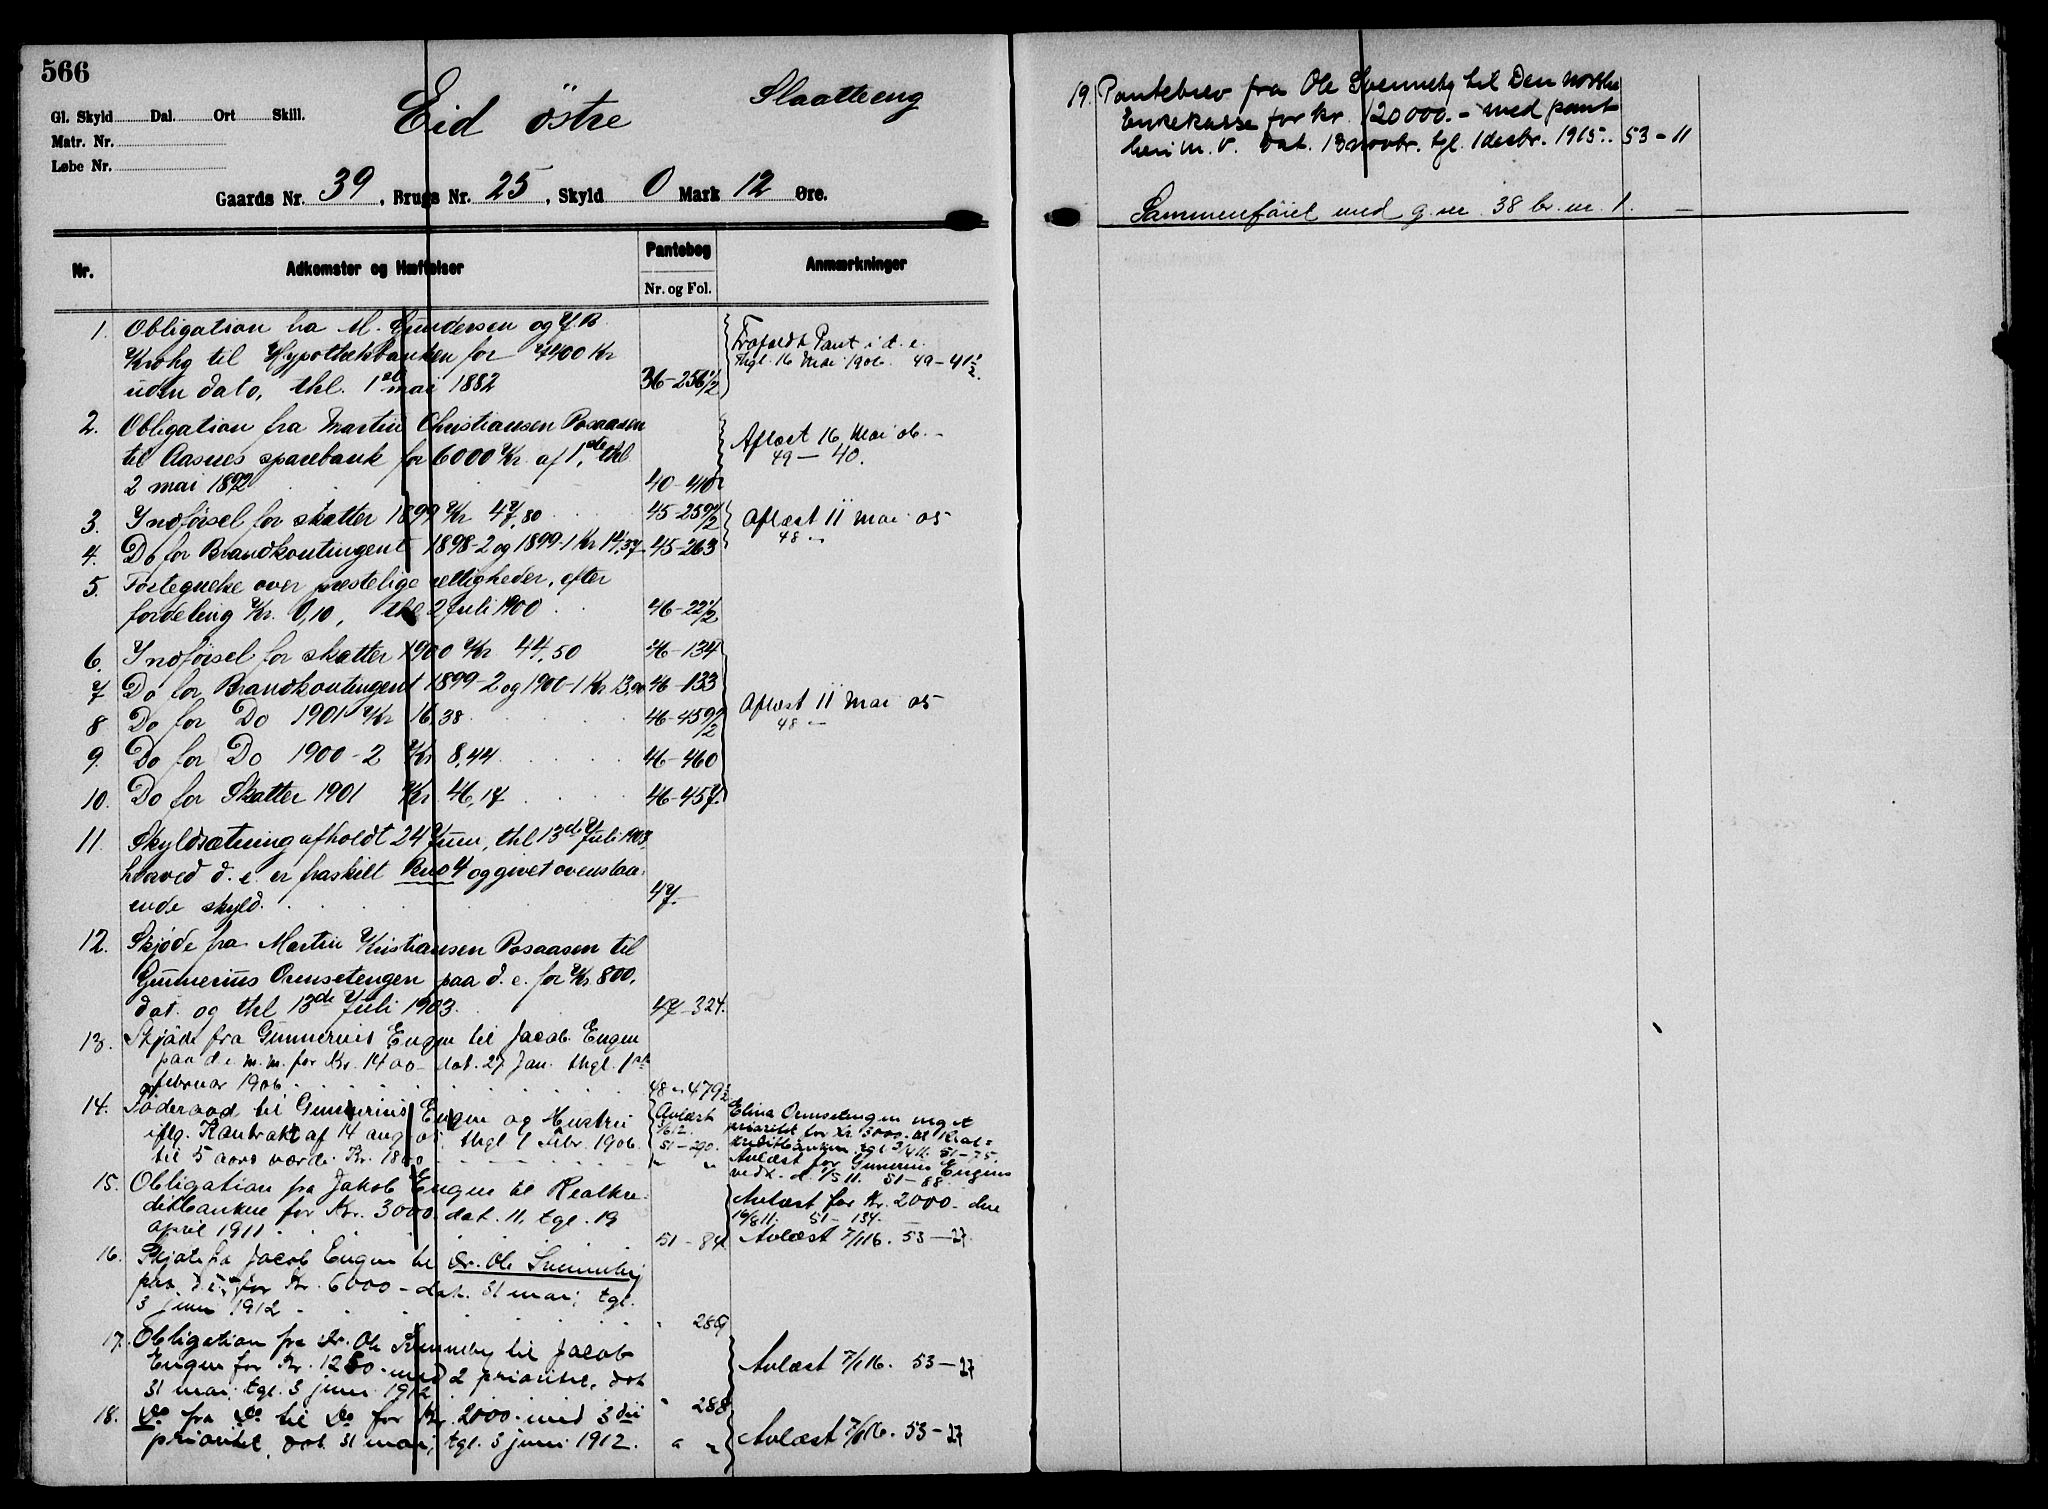 566
Gl. Skyld Dal. Ort Skill.
Matr. Nr.
Løbe Nr.
Eid östre
Slaatteeng
Gaards Nr. 39, Brugs Nr. 25, Skyld 0 Mark 12 Øre.
Nr.
Adkomster og Hæftelser
Pantebog
Nr. og Fol.
Anmærkninger
1. Obligation fra M. Gundersen og J. B.
Krohg til Hypothekbanken for 7400 Kr
uden dato, thl. 1ste mai 1882 36-256 1/2
Frafaldt Pant i d. e.
Thgl. 16 Mai 1906. 49-41 1/2.
2. Obligation fra Martin Christiansen Posaasen
til Aasnes sparebank for 6000 Kr. af 1. ste thl
2 mai 1892 40-410
Aflæst 16 Mai 06.-
49-40.
3. Indførsel for skatter 1899 Kr 47,80 45-259 1/2
4. Do for Brandkontingent 1898-2 og 1899-1 Kr 14,37 45-263
Aflæst 11 Mai 05
48 "
5. Fortegnelse over præstelige rettigheder, efter
fordeling Kr. 0,10, thl 2 Juli 1900 46-22 1/2
6. Indførsel for skatter 1900 Kr 44,50 46-134
7 Do for Brandkontingent 1899-2 og 1900-1 Kr 13,90 46-133
8 Do for Do 1901 Kr 16,38 46-459 1/2
Aflæst 11 Mai 05
48 "
9. Do for Do 1900-2 Kr 8,44 46-460
10. Do for Skatter 1901 Kr 46,17 46-457.
11. Skyldsætning afholdt 24 Juni, thl 13de Juli 1903,
hvorved d. e. er fraskilt Bno 4 og givet ovenstaa-
ende skyld. 47.
12. Skjøde fra Martin Kristiansen Posaasen til
Gunnerius Ormsetengen paa d. e. for Kr 800,
dat. og thl 13de Juli 1903. 47-324.
13. Skjøde fra Gunnerius Engen til Jacob Engen
paa d e. m. m. for Kr. 1400- dat. 27 Jan. thgl. 1ste
februar 1906. 48 - 479 1/2
14. Föderaad til Gunnerius Engen og Hustru
iflg. Kontrakt af 14 aug 05. thgl 1 Febr. 1906.
til 5 aars værdi Kr. 1800
Avlæst
51-290.
Elina Ormsetengen veget
prioritet for Kr. 3000.- til Real-
kreditbanken tgl 3/4 11. 51-75.
Avlæst for Gunerius Engens
vedk. d. 1/5 11. 51-88
15. Obligation fra Jakob Engen til Realkre-
ditbanken for Kr. 3000. dat. 11, tgl. 19
april 1911 51-84
Avlæst for Kr. 2000- den
16/8 11. 51-134.
Avlæst 7/1 16. 53-27.
16. Skjøte fra Jacob Engen til dr. Ole Svenneby
paa d e. for Kr. 6000- dat. 31 mai, tgl.
3 juni 1912 " 289
17. Obligation fra dr. Ole Svenneby til Jacob
Engen for Kr. 1250.- med 2 prioritet, dat
31 mai, tgl. 3 juni 1912 " 288
Avlæst 7/1 16. 53-27
18. Do fra Do til Do for Kr. 2000.- med 3die
prioritet, dat 31 mai, tgl. 3 juni 1912. " "
Avlæst 7/1 16. 53-27
19. Pantebrev fra Ole Svenneby til Den norske
Enkekasse for kr. 120000.- med pant
heri m. v. Dat. 13 novbr. tgl. 1 decbr. 1915. 53-11
Sammenføiet med g. nr. 38 br. nr. 1.